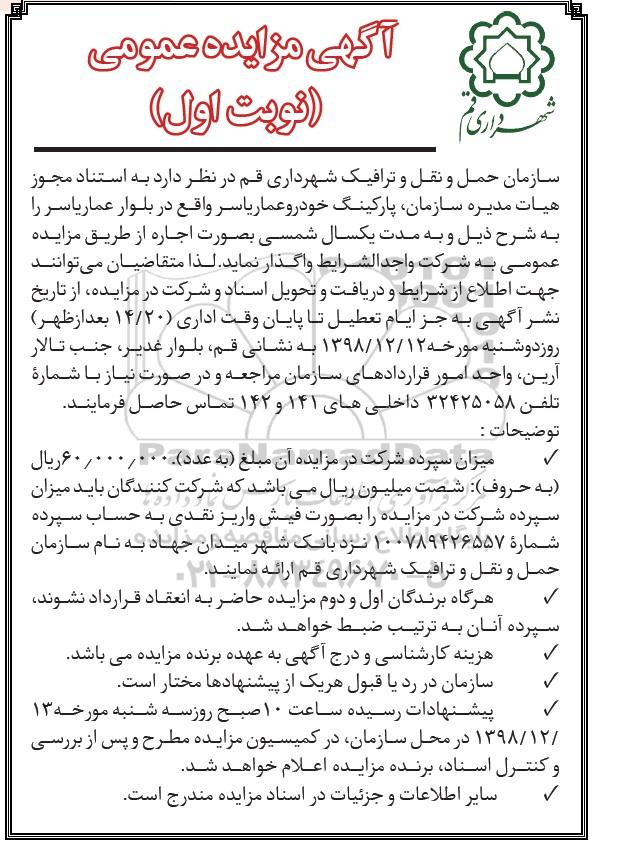 آگهی مزایده عمومی
(نوبت اول)
شهرداری قم
سازمان حمل و نقل و ترافیک شهرداری قم در نظر دارد به استناد مجوز
هیات مدیره سازمان، پارکینگ خودروعماریاسر واقع در بلوار عماریاسر را
به شرح ذیل و به مدت یکسال شمسی بصورت اجاره از طریق مزایده
عمومی به شرکت واجدالشرایط واگذار نماید.لذا متقاضیان می‌توانند
جهت اطلاع از شرایط و دریافت و تحویل اسناد و شرکت در مزایده، از تاریخ
نشر آگهی به جز ایام تعطیل تا پایان وقت اداری (۱۴/۲۰ بعدازظهر)
روزدوشنبه مورخه۱۳۹۸/۱۲/۱۲ به نشانی قم، بلوار غدیر، جنب تالار
آرین، واحد امور قراردادهای سازمان مراجعه و در صورت نیاز با شمارۀ
تلفن ۳۲۴۲۵۰۵۸ داخلی های ۱۴۱ و ۱۴۲ تماس حاصل فرمایند.
توضیحات :
✓ میزان سپرده شرکت در مزایده آن مبلغ (به عدد).۶۰/۰۰۰/۰۰۰ریال
(به حروف): شصت میلیون ریال می باشد که شرکت کنندگان باید میزان
سپرده شرکت در مزایده را بصورت فیش واریز نقدی به حساب سپرده
شمارۀ ۱۰۰۷۸۹۴۲۶۵۵۷ نزد بانک شهر میدان جهاد به نام سازمان
حمل و نقل و ترافیک شهرداری قم ارائه نمایند.
✓ هرگاه برندگان اول و دوم مزایده حاضر به انعقاد قرارداد نشوند،
سپرده آنان به ترتیب ضبط خواهد شد.
✓ هزینه کارشناسی و درج آگهی به عهده برنده مزایده می باشد.
✓ سازمان در رد یا قبول هریک از پیشنهادها مختار است.
✓ پیشنهادات رسیده ساعت ۱۰صبح روزسه شنبه مورخه۱۳
/۱۳۹۸/۱۲ در محل سازمان، در کمیسیون مزایده مطرح و پس از بررسی
و کنترل اسناد، برنده مزایده اعلام خواهد شد.
✓ سایر اطلاعات و جزئیات در اسناد مزایده مندرج است.
ParaNamadData
پایگاه اطلاع رسانی مناقصه و مزایده
۰۲۱-۸۸۳۴۹۶۷۰-۵